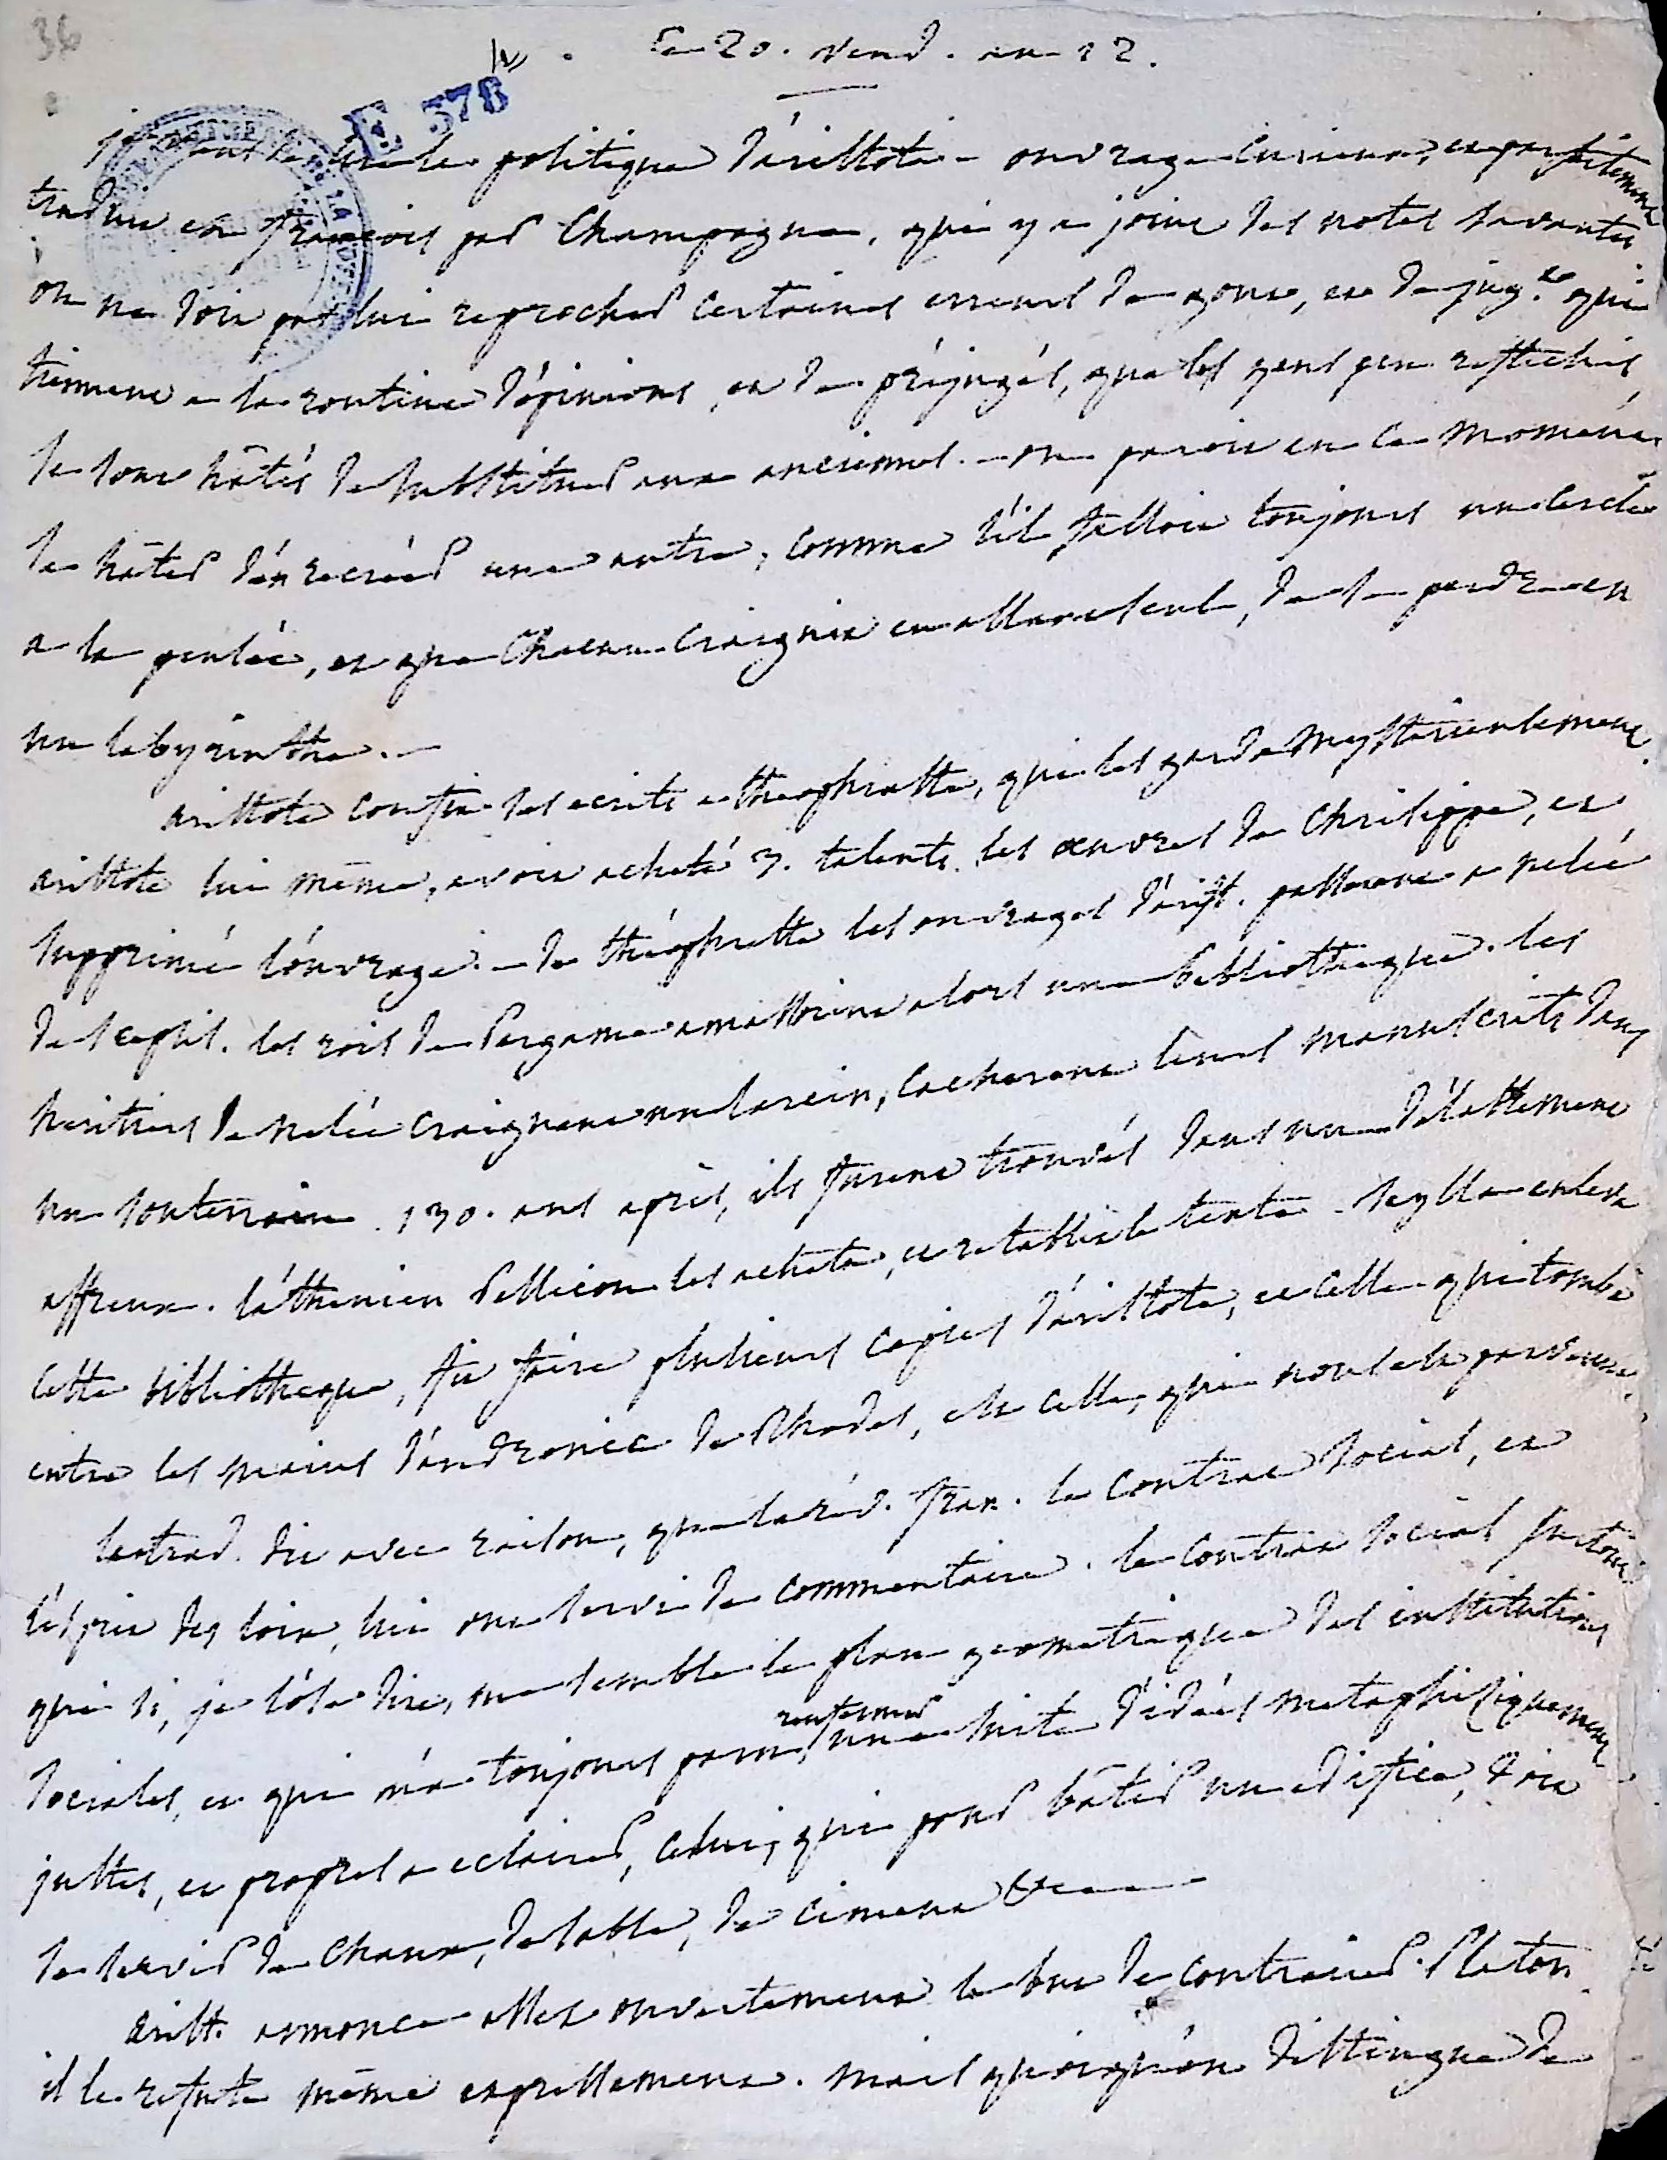 36
Le 20. vend. an 12.
E 378
je viens de lire la politique d'aristote - ouvrage curieux, et parfaitement
traduit en françois par Champagne, qui y a joint des notes savantes
on ne doit pas lui reprocher certaines erreurs de gout, et de jugt. qui
tiennent a la routine d'opinions, et de préjugés, que les gens peu reflechis,
se sont hâtés de substituer aux anciennes. - on paroit en ce moment
se hâter d'en recréer une autre, comme s'il falloit toujours un cercle
a la pensée, et que chacun craignit en allant seul, de se perdre en
un labyrinthe. -
aristote confia ses ecrits a theophraste, qui les garda mysterieusement.
aristote lui même, avoit acheté 3. talents les œuvres de Chrilippe, et
supprimé l'ouvrage. - de théophraste les ouvrages d'arist. passerent a nelée
de scepsis. les rois de Pergame amassoient alors une bibliothéque. les
heritiers de nelée craignant un larcin, cacherent leurs manuscrits dans
un souterrain. 130. ans après, ils furent trouvés dans un délabrement
affreux. l'athenien Pellicon les acheta, et retablit le texte. Sylla enleva
cette bibliotheque, fit faire plusieurs copies d'aristote, et celle qui tomba
entre les mains d'andronic de Rhodes, est celle, qui nous est parvenue.
le trad. dit avec raison, que la rév. fran. le contrat social, et
l'esprit des loix, lui ont servi de commentaire. le contrat social surtout
qui si, je l'ose dire, me semble le plan geometrique des institutions
sociales, et qui m'a toujours paru renfermer une suite d'idées metaphisiquement
justes, et propres a eclairer, celui, qui pour bâtir un edifice, doit
se servir de chaux, de sable, de ciment &c
arist. annonce assez ouvertement le but de contrarier Platon.
il le refute même expressement. mais quoiqu'on distingue de